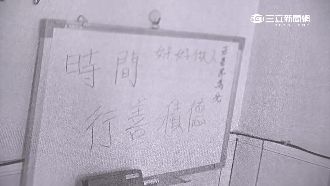 三立新聞網
時間 好好做人
行善積德